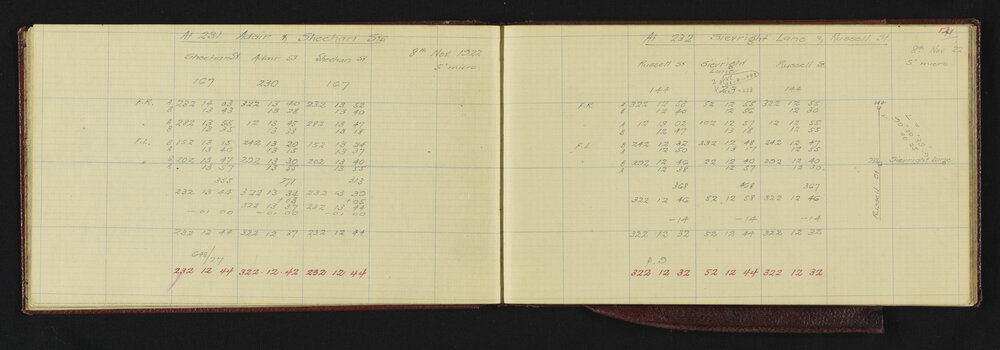 At 231 Adair & Sheehan Sts
8th Nov 1922
5" micro
Sheehan St Adair St Sheehan St
167 230 167
F.R. A 232 14 03 322 13 40 232 13 52
B 13 43 13 28 13 40
A 282 13 55 12 13 45 282 13 47
B 13 35 13 13 18
F.L. 152 13 15 242 13 20 152 13
13 40 13 15 13 37
202 13 47 292 13 30 202 13 40
13 57 13 13 55
355 271 313
232 13 44 322 13 34 232 13 39
+03 +05
322 13 37 232 13 44
-01 00 -01 00 -01 00
232 12 44 322 12 37 232 12 44
232 12 44 322 12 42 232 12 44
At 232 Sievright Lane & Russell St
8th Nov 22
5" micro
Russell St Sievright Lane Russell St
144 144
F.R. A 322 12 55 52 12 55 322 12 55
B 12 40 12 56 12 30
A 12 13 02 102 12 57 12 12 55
B 12 47 13 18 12 55
F.L. 242 12 42 332 12 48 242 12 47
12 50 13 17 12 55
292 12 46 22 12 40 292 12 40
12 38 12 57 12 30
368 468 367
322 12 46 52 12 58 322 12 46
-14 -14 -14
322 12 32 52 12 44 322 12 32
322 12 32 52 12 44 322 12 32
Sievright Lane
Russell St